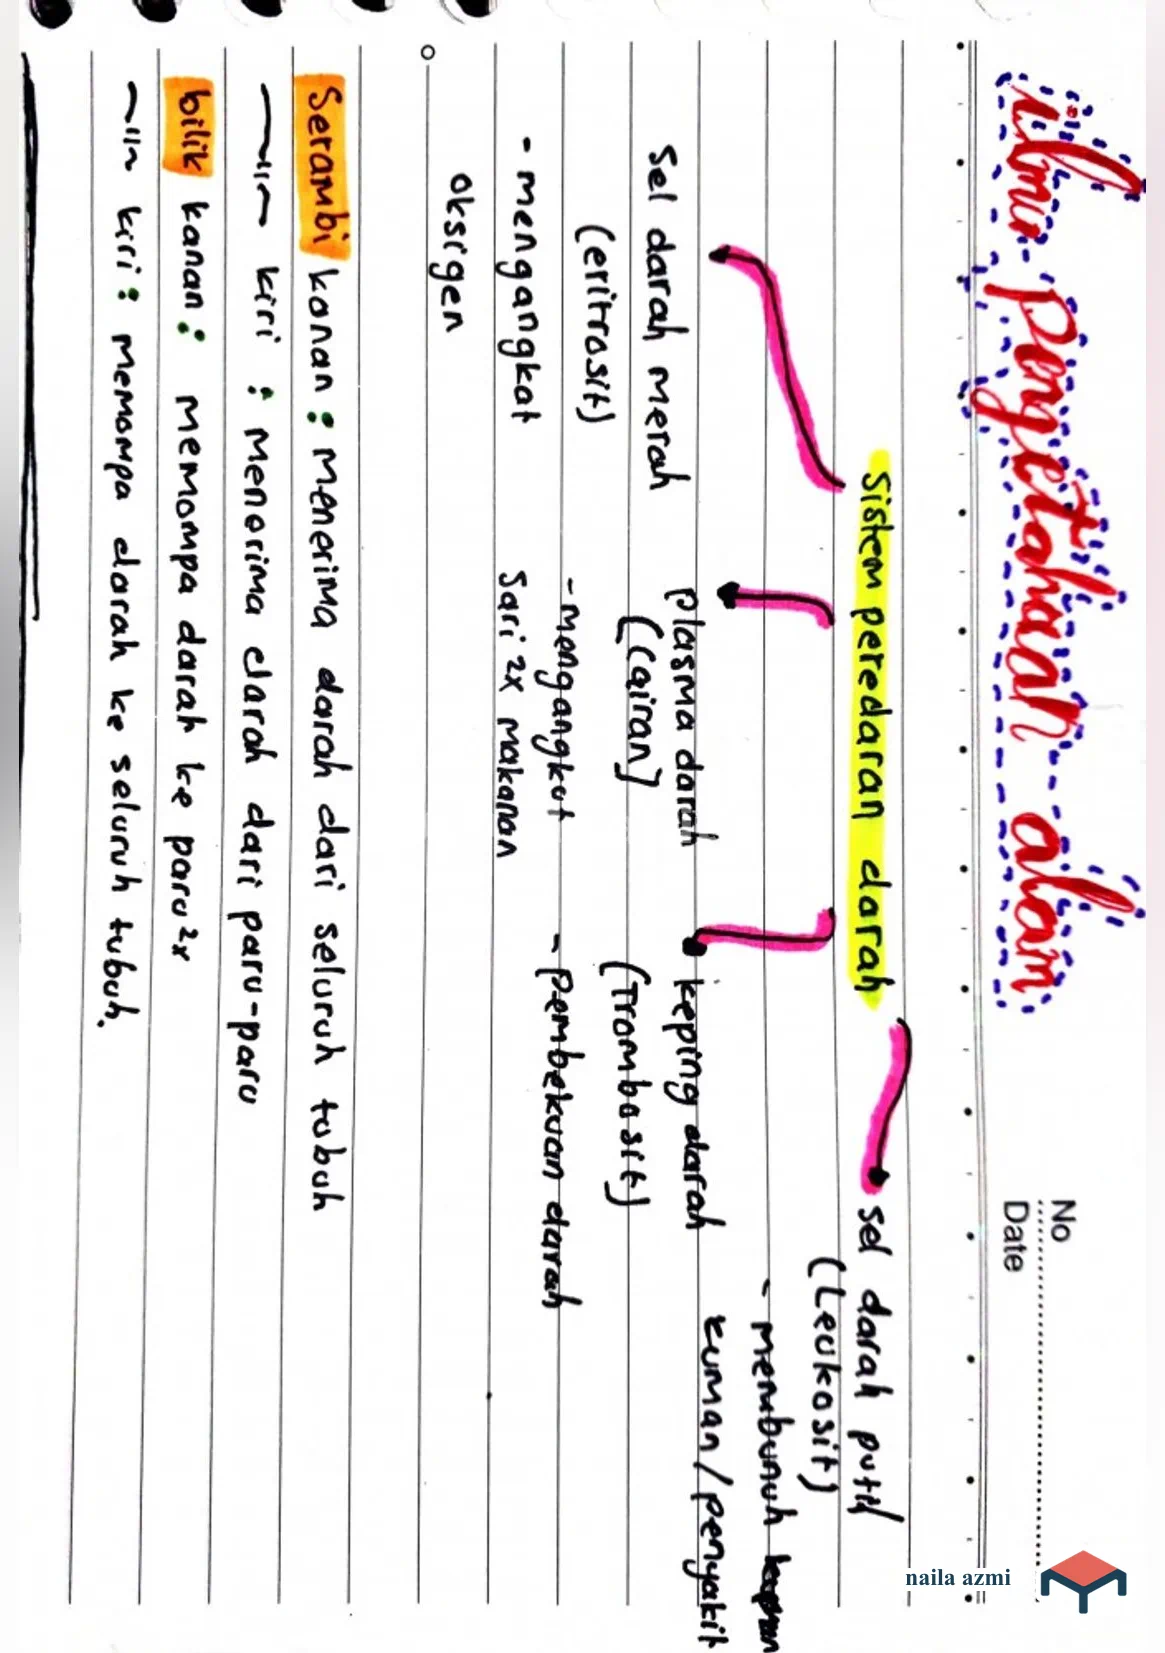 ilmu pengetahuan alam
No
Date
Sistem peredaran darah
sel darah putih
(Leukosit)
- membunuh
kuman/penyakit
Sel darah merah
(eritrosit)
- mengangkat
oksigen
plasma darah
(cairan)
- mengangkut
Sari 2x makanan
keping darah
(Trombosit)
- pembekuan darah
Serambi kanan : menerima darah dari seluruh tubuh
~〃~ kiri : menerima darah dari paru-paru
bilik kanan : memompa darah ke paru2x
~〃~ kiri : memompa darah ke seluruh tubuh.
naila azmi